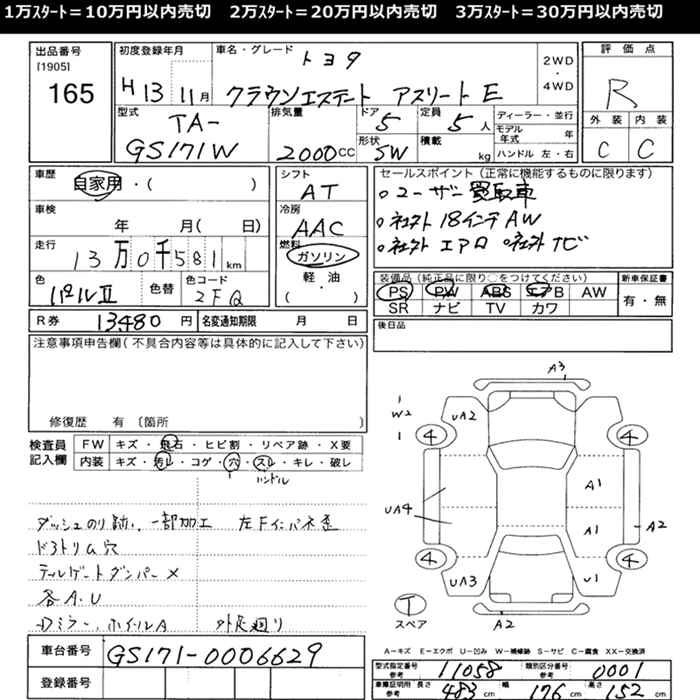 1万スタート＝10万円以内売切　2万スタート＝20万円以内売切　3万スタート＝30万円以内売切
出品番号
[1905]
165
初度登録年月
H 13 11月
車名・グレード
トヨタ
クラウンエステート アスリートE
2WD
・
4WD
評価点
R
外装 内装
C C
型式
TA-
GS171W
排気量
2000cc
ドア
5
形状
SW
定員
5人
積載
kg
ディーラー・並行
モデル年式 年
ハンドル 左・右
車歴
自家用・( )
車検
年 月( 日)
走行
13万0千581km
色
パールII
色替
色コード
2FQ
シフト
AT
冷房
AAC
燃料
ガソリン
軽・油
( ・ )
セールスポイント(正常に機能するものに限ります)
○ユーザー買取車
○社外18インチAW
○社外エアロ ○社外ナビ
装備品(純正品に限り○をつけてください)
PS PW ABS エアB AW
SR ナビ TV カワ
新車保証書
有・無
R券 13480円
名変通知期限 月 日
後日品
注意事項申告欄(不具合内容等は具体的に記入して下さい)
修復歴 有〔箇所 〕
検査員記入欄
FW キズ・飛石・ヒビ割・リペア跡・X要
内装 キズ・汚レ・コゲ・穴・スレ・キレ・破レ
ハンドル
ダッシュのり跡、一部加工 左Fインパネ歪
ドアトリム穴
テールゲートダンパー×
各A.U
Dミラー、ホイルA 外足廻り
A3
W2
UA2
4
4
UA4
A1
A1
A2
4
4
UA3
U1
T
スペア
A2
A－キズ E－エクボ U－凹み W－補修跡 S－サビ C－腐食 XX－交換済
車台番号
GS171-0006629
登録番号
型式指定番号
参考
11058
類別区分番号
参考
0001
車庫証明用
参考
長さ 483cm 幅 176cm 高さ 152cm